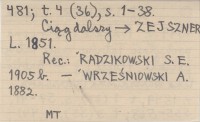 481; t. 4 (36), s. 1-38.
Ciąg dalszy → ZEJSZNER
L. 1851.
Rec.: RADZIKOWSKI S. E.
1905 b. — WRZEŚNIOWSKI A.
1882.
MT